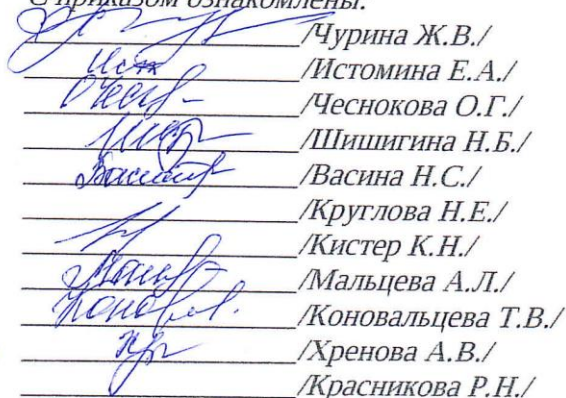 С приказом ознакомлены:
/Чурина Ж.В./
/Истомина Е.А./
/Чеснокова О.Г./
/Шишигина Н.Б./
/Васина Н.С./
/Круглова Н.Е./
/Кистер К.Н./
/Мальцева А.Л./
/Коновальцева Т.В./
/Хренова А.В./
/Красникова Р.Н./